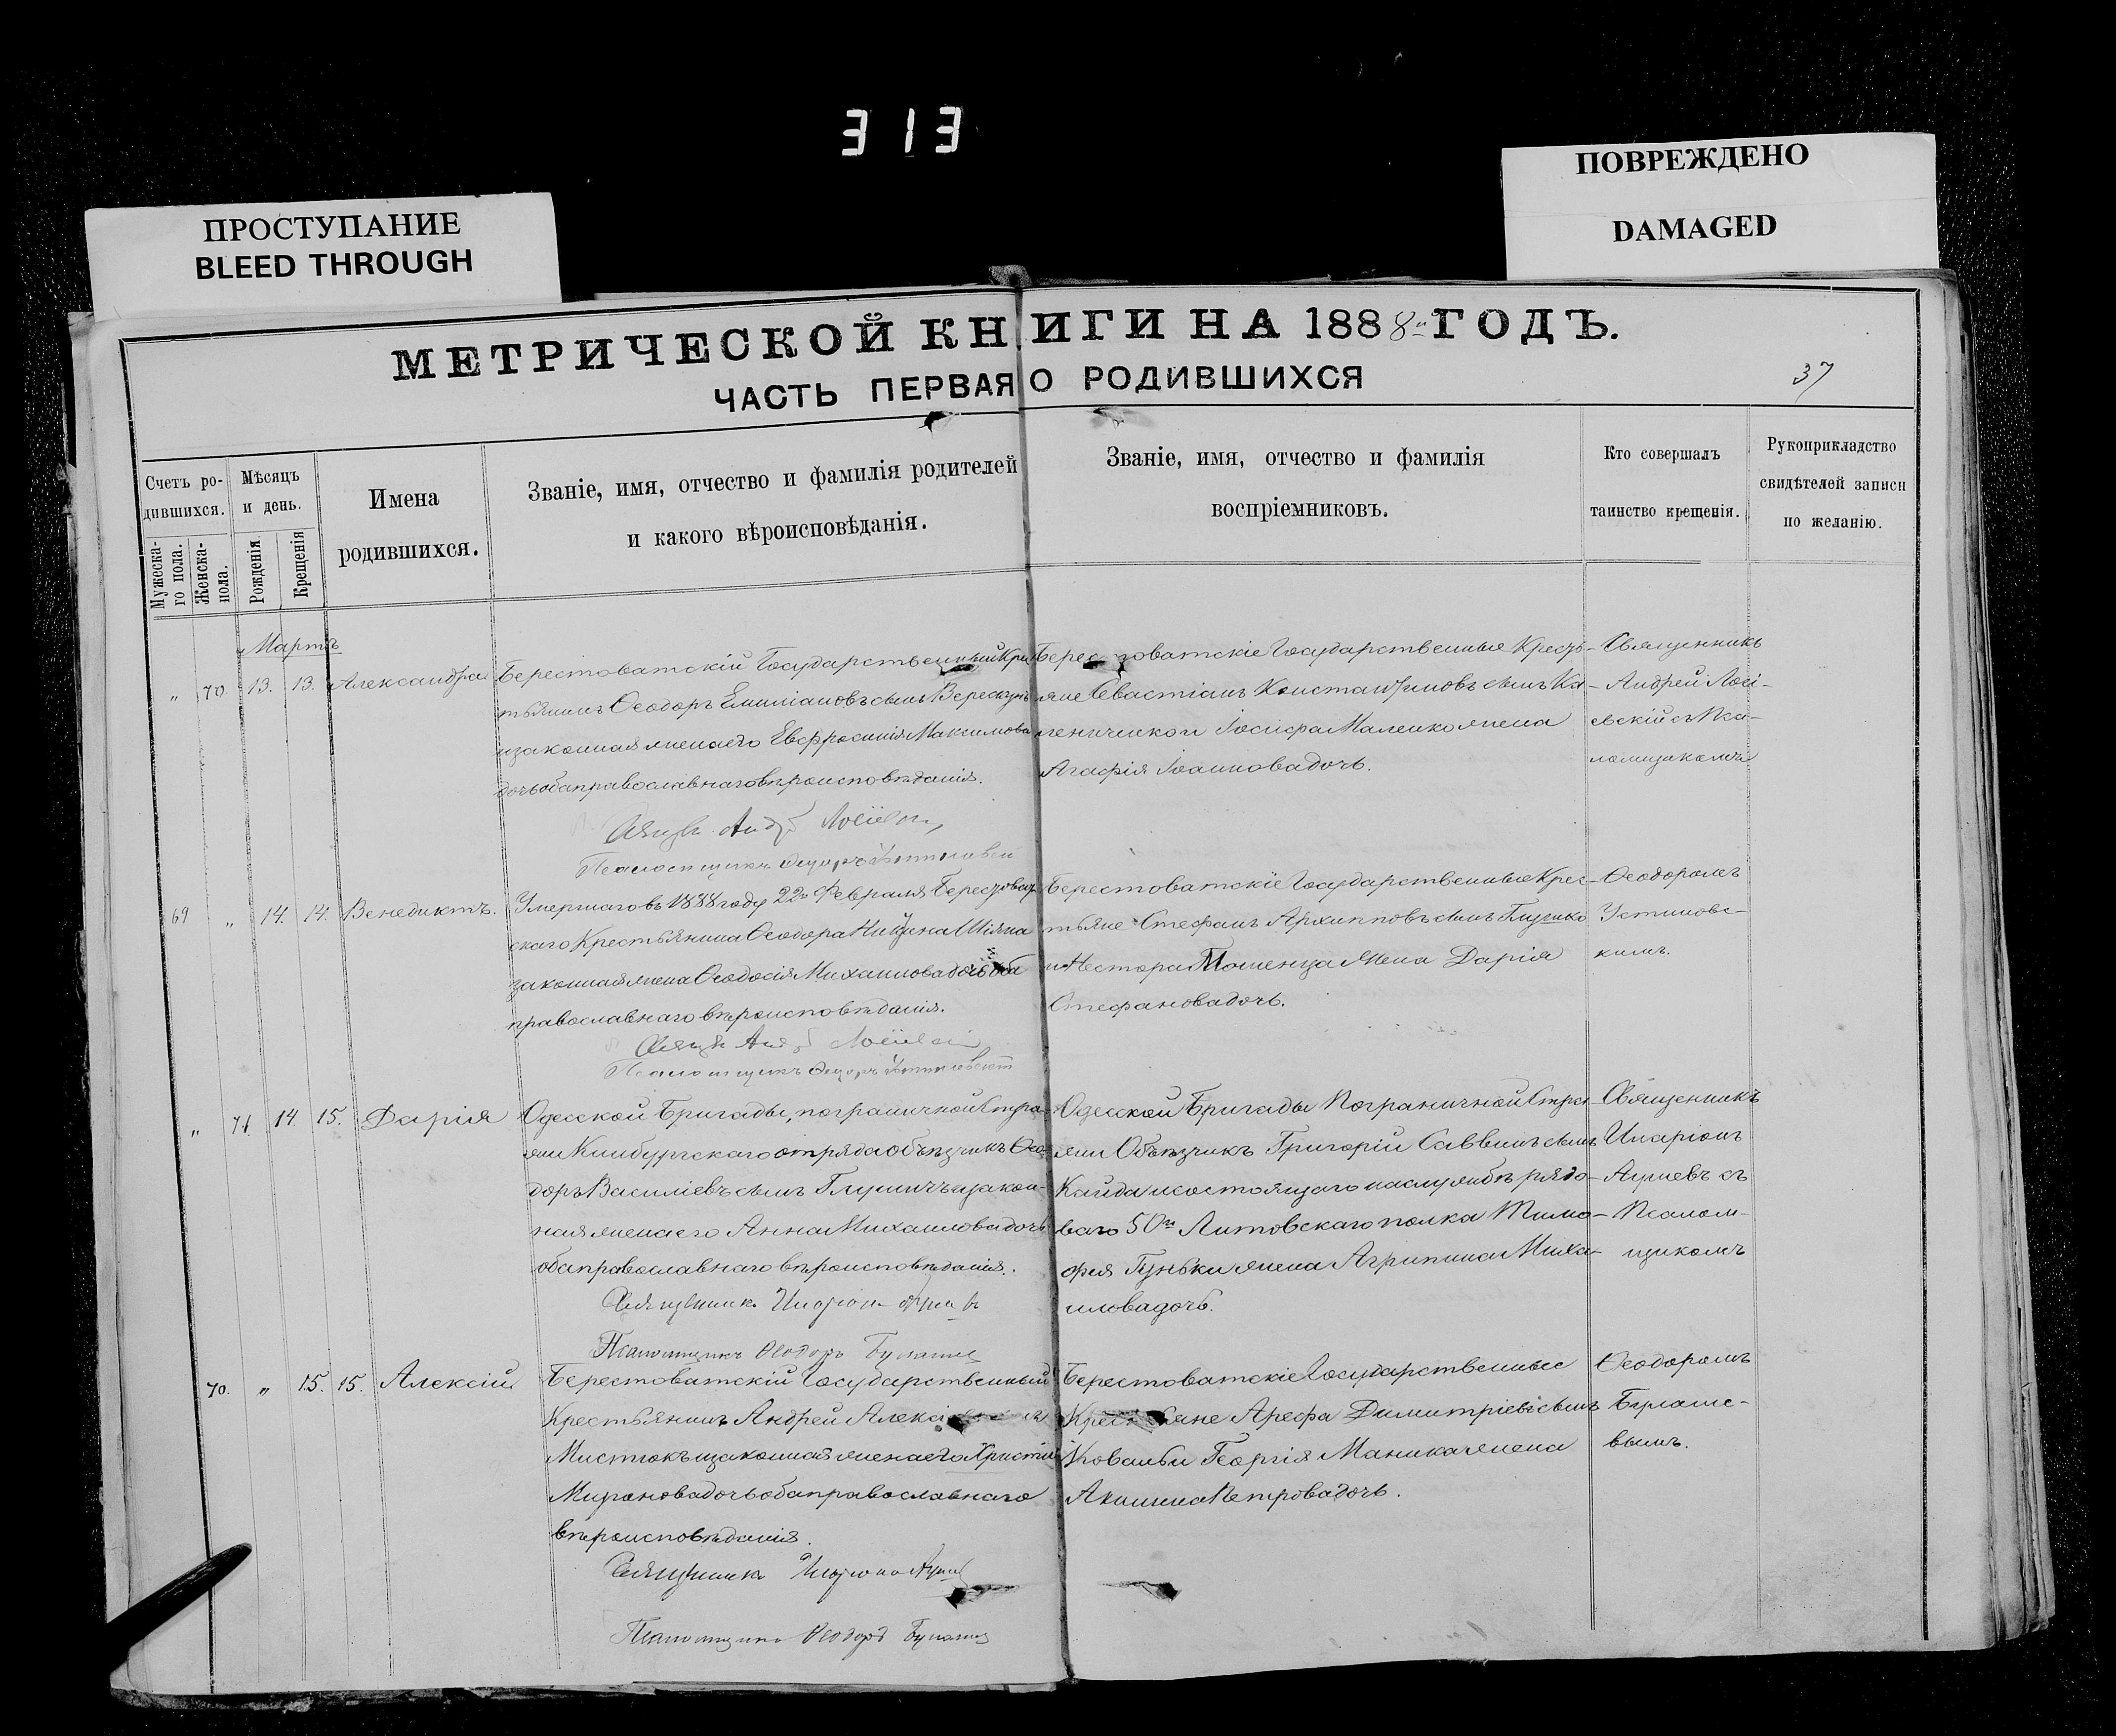 313
ПРОСТУПАНИЕ
BLEED THROUGH
ПОВРЕЖДЕНО
DAMAGED
МЕТРИЧЕСКОЙ КНИГИ НА 1888й ГОДЪ.
ЧАСТЬ ПЕРВАЯ О РОДИВШИХСЯ
37
Счетъ ро-
дившихся.
Мужеска-
го пола.
Женска-
пола.
Мѣсяцъ
и день.
Рожденія
Крещенія
Имена
родившихся.
Званіе, имя, отчество и фамилія родителей
и какого вѣроисповѣданія.
Званіе, имя, отчество и фамилія
воспріемниковъ.
Кто совершалъ
таинство крещенія.
Рукоприкладство
свидѣтелей записи
по желанію.
Мартъ
" 70 13. 13. Александра
Берестоватскій Государственный Крес
тьянинъ Ѳеодоръ Емиліановъ сынъ
и законная жена его Евфросинія Максимова
дочь оба православнаго вѣроисповѣданія.
Псаломщикъ
Берестоватскіе Государственные Кресть-
яне Севастіанъ Константиновъ сынъ Ка-
и Іосифа Маленко жена
Агафія Іоаннова дочь.
Священникъ
Андрей Лосі-
евскій съ Пса-
ломщикомъ
69 " 14. 14. Венедиктъ.
Умершаго въ 1888 году 22го Февраля Берестоват
скаго Крестьянина Ѳеодора
законная жена Ѳеодосія Михаилова дочь оба
православнаго вѣроисповѣданія.
Псаломщикъ
Берестоватскіе Государственные Крес-
тьяне Стефанъ Архипповъ сынъ
и Нестора жена Дарія
Стефанова дочь.
Ѳеодоромъ
Устиновс-
кимъ.
" 71. 14. 15. Дарія
Одесской Бригады, пограничной Стра-
жи Кинбургскаго отряда объѣзчикъ Ѳео-
доръ Василіевъ сынъ и закон-
ная жена его Анна Михаилова дочь
оба православнаго вѣроисповѣданія.
Священникъ Иларіонъ
Псаломщикъ Ѳеодоръ
Одесской Бригады Пограничной Стра-
жи Объѣзчикъ Григорій Саввинъ сынъ
Кайда и состоящаго на службѣ рядо-
ваго 50го Литовскаго полка Тимо-
фея жена Агрипина Миха-
илова дочь.
Священникъ
Иларіонъ
съ
Псалом-
щикомъ
70. " 15. 15. Алексій
Берестоватскій Государственный
Крестьянинъ Андрей
и законная жена его Христи
Миронова дочь оба православнаго
вѣроисповѣданія.
Священникъ
Псаломщикъ Ѳеодоръ
Берестоватскіе Государственные
Крестьяне Арефа Димитріевъ сынъ
Георгія жена
Акилина Петрова дочь.
Ѳеодоромъ
Булаше-
вымъ.